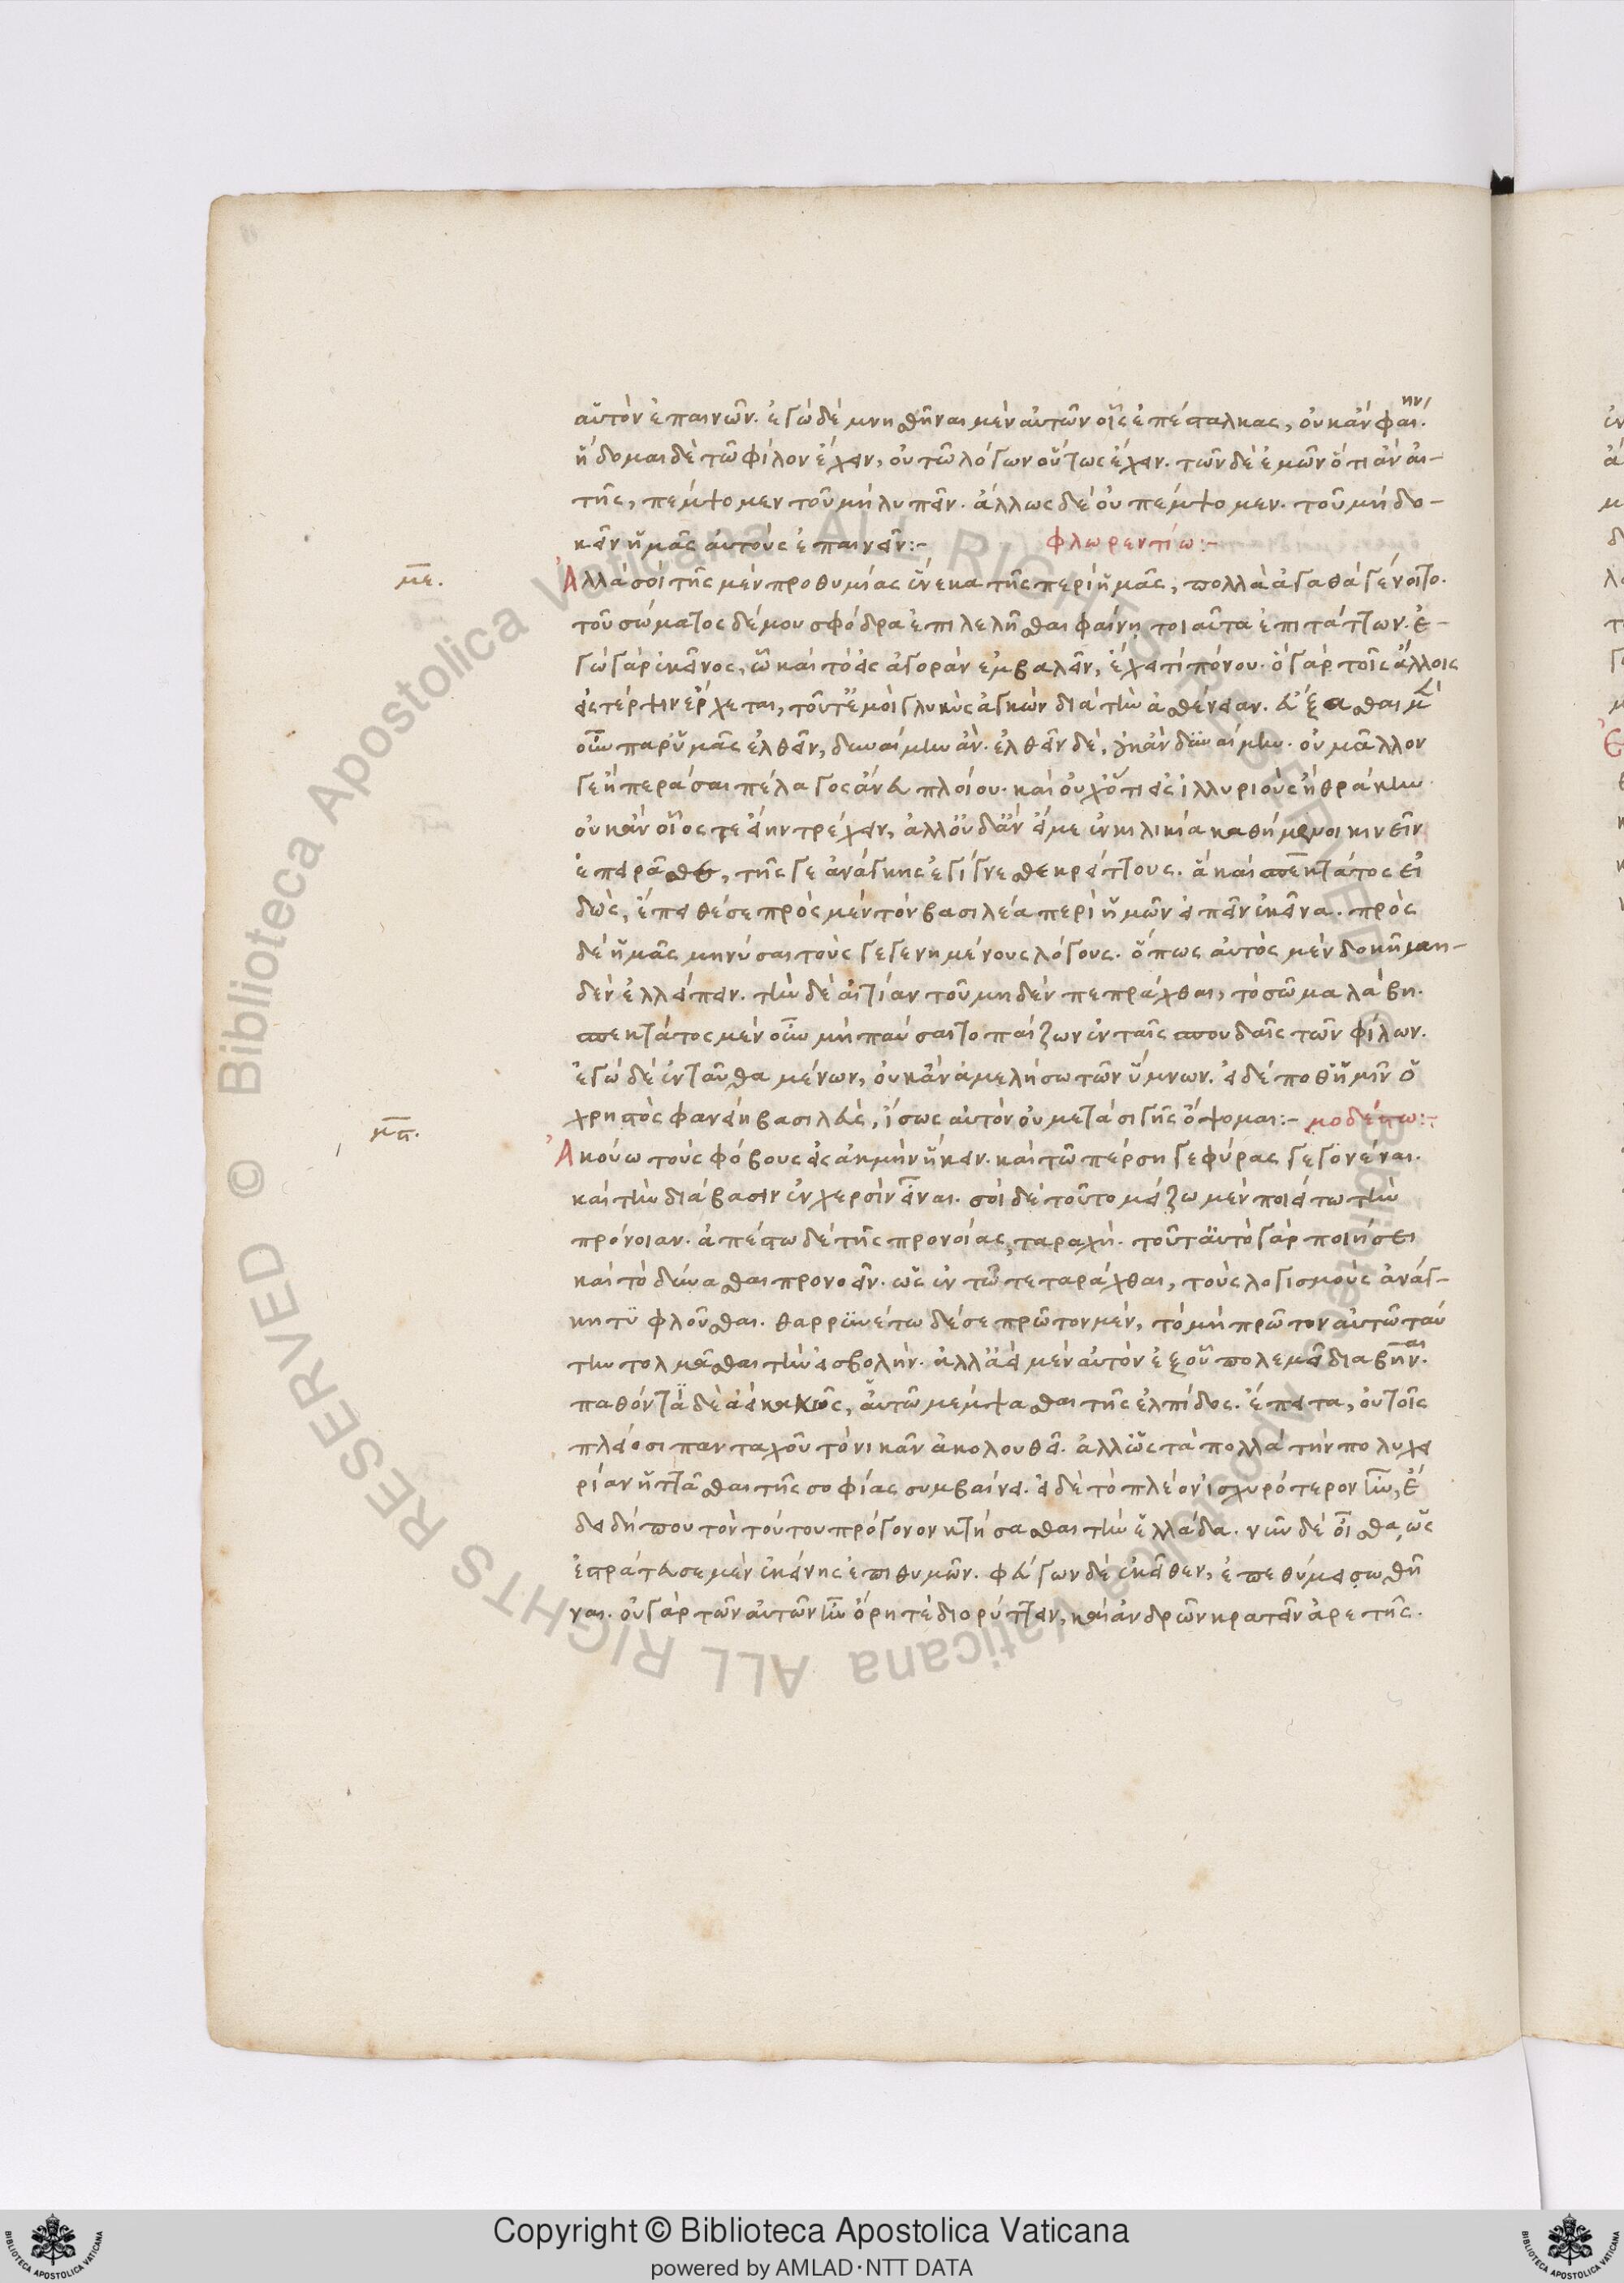 αὑτὸν ἐπαινῶν. ἐγὼ δὲ μνησθῆναι μὲν αὐτῶν οἷς ἐπέσταλκας, οὐκ ἂν φαίην.
ἥδομαι δὲ τῶ φίλον ἔχειν, οὐ τῶ λόγων οὕτως ἔχειν. τῶν δὲ ἐμῶν ὅτι ἂν αἰ-
τῆς, πέμψομεν τοῦ μὴ λυπεῖν. ἄλλως δὲ οὐ πέμψομεν. τοῦ μὴ δο-
κεῖν ἡμᾶς αὐτοὺς ἐπαινεῖν:- φλωρεντίω:-
με. Ἀλλὰ σοὶ τῆς μὲν προθυμίας εἵνεκα τῆς περὶ ἡμᾶς, πολλὰ ἀγαθὰ γένοιτο.
τοῦ σώματος δέ μου σφόδρα ἐπιλελῆσθαι φαίνη τοιαῦτα ἐπιτάττων. ἐ-
γὼ γὰρ ἐκεῖνος, ὧ καὶ τὸ εἰς ἀγορὰν ἐμβαλεῖν, ἔχει τί πόνου. ὃ γὰρ τοῖς ἄλλοις
εἰς τέρψιν ἔρχεται, τοῦτ' ἐμοὶ γλυκὺς ἀγκὼν διὰ τὴν ἀσθένειαν. εὔξασθαι μὲν
οὖν παρ' ὑμᾶς ἐλθεῖν, δυναίμην ἄν. ἐλθεῖν δὲ, οὐκ ἂν δυναίμην. οὐ μᾶλλον
γε ἢ περάσαι πέλαγος ἄνευ πλοίου. καὶ οὐχ ὅτι εἰς ἰλλυριοὺς ἢ θράκην
οὐκ ἂν οἷός τε εἴην τρέχειν, ἀλλ' οὐδ' ἂν εἴ με ἐν κιλικία καθήμενοι κινεῖν
ἐπειρᾶσθε, τῆς γε ἀνάγκης ἐγίγνεσθε κρείττους. ἃ καὶ σπεκτάτος εἰ
δὼς, ἔπειθέ σε πρὸς μὲν τὸν βασιλέα περὶ ἡμῶν εἰπεῖν ἐκεῖνα. πρὸς
δὲ ἡμᾶς μηνύσαι τοὺς γεγενημένους λόγους. ὅπως αὐτὸς μὲν δοκῆ μη-
δὲν ἐλλείπειν. τὴν δὲ αἰτίαν τοῦ μηδὲν πεπράχθαι, τὸ σῶμα λάβη.
σπεκτάτος μὲν οὖν μὴ παύσαιτο παίζων ἐν ταῖς σπουδαῖς τῶν φίλων.
ἐγὼ δὲ ἐνταῦθα μένων, οὐκ ἂν ἀμελήσω τῶν ὕμνων. εἰ δέ ποθ' ἡμῖν ὁ
χρηστὸς φανείη βασιλεὺς, ἴσως αὐτὸν οὐ μετὰ σιγῆς ὄψομαι:- μοδέστω:-
μϛ. Ἀκούω τοὺς φόβους εἰς ἀκμὴν ἥκειν. καὶ τῶ πέρση γεφύρας γεγονέναι.
καὶ τὴν διάβασιν ἐν χερσὶν εἶναι. σοὶ δὲ τοῦτο μείζω μὲν ποιείτω τὴν
πρόνοιαν. ἀπέστω δὲ τῆς προνοίας, ταραχή. τοῦτ' αὐτὸ γὰρ ποιήσει
καὶ τὸ δύνασθαι προνοεῖν. ὡς ἐν τῶ τεταράχθαι, τοὺς λογισμοὺς ἀνάγ-
κη τυφλοῦσθαι. θαρρυνέτω δέ σε πρῶτον μὲν, τὸ μὴ πρῶτον αὐτῶ ταύ
την τολμᾶσθαι τὴν εἰσβολήν. ἀλλ' ἀεὶ μὲν αὐτὸν ἐξ οὗ πολεμεῖ διαβῆναι.
παθόντα δὲ ἀεὶ κακῶς, αὑτῶ μέμψασθαι τῆς ἐλπίδος. ἔπειτα, οὐ τοῖς
πλείοσι πανταχοῦ τὸ νικᾶν ἀκολουθεῖ. ἀλλ' ὡς τὰ πολλὰ τὴν πολυχει
ρίαν ἡττᾶσθαι τῆς σοφίας συμβαίνει. εἰ δὲ τὸ πλέον ἰσχυρότερον ἦν, ἔ
δει δήπου τὸν τούτου πρόγονον κτήσασθαι τὴν ἑλλάδα. νῦν δὲ οἶσθα, ὡς
ἐστράτευσε μὲν ἐκείνης ἐπιθυμῶν. φεύγων δὲ ἐκεῖθεν, ἐπεθύμει σωθῆ
ναι. οὐ γὰρ τῶν αὐτῶν ἦν ὄρη τὲ διορύττειν, καὶ ἀνδρῶν κρατεῖν ἀρετῆς.
© Biblioteca Apostolica Vaticana ALL RIGHTS RESERVED © Biblioteca Apostolica Vaticana ALL RIGHTS RESERVED
Copyright © Biblioteca Apostolica Vaticana
powered by AMLAD·NTT DATA
BIBLIOTECA APOSTOLICA VATICANA
BIBLIOTECA APOSTOLICA VATICANA